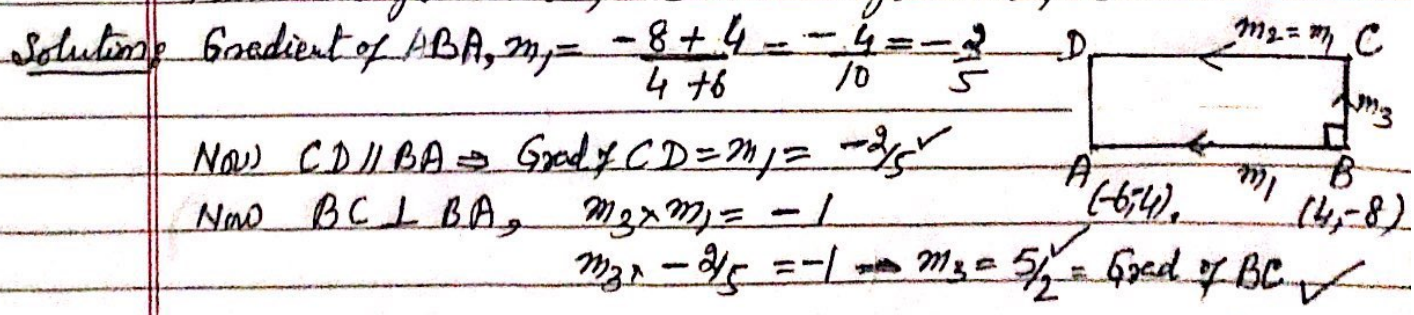 Solution: Gradient of ABA, m₁ = (-8 + 4)/(4 + 6) = -4/10 = -2/5
Now CD // BA ⇒ Grad of CD = m₁ = -2/5 ✓
Now BC ⊥ BA, m₃ × m₁ = -1
m₃ × -2/5 = -1 → m₃ = 5/2 ✓ = Grad of BC ✓
D m₂ = m₁ C
m₃
A m₁ B
(-6,-4). (4,-8)